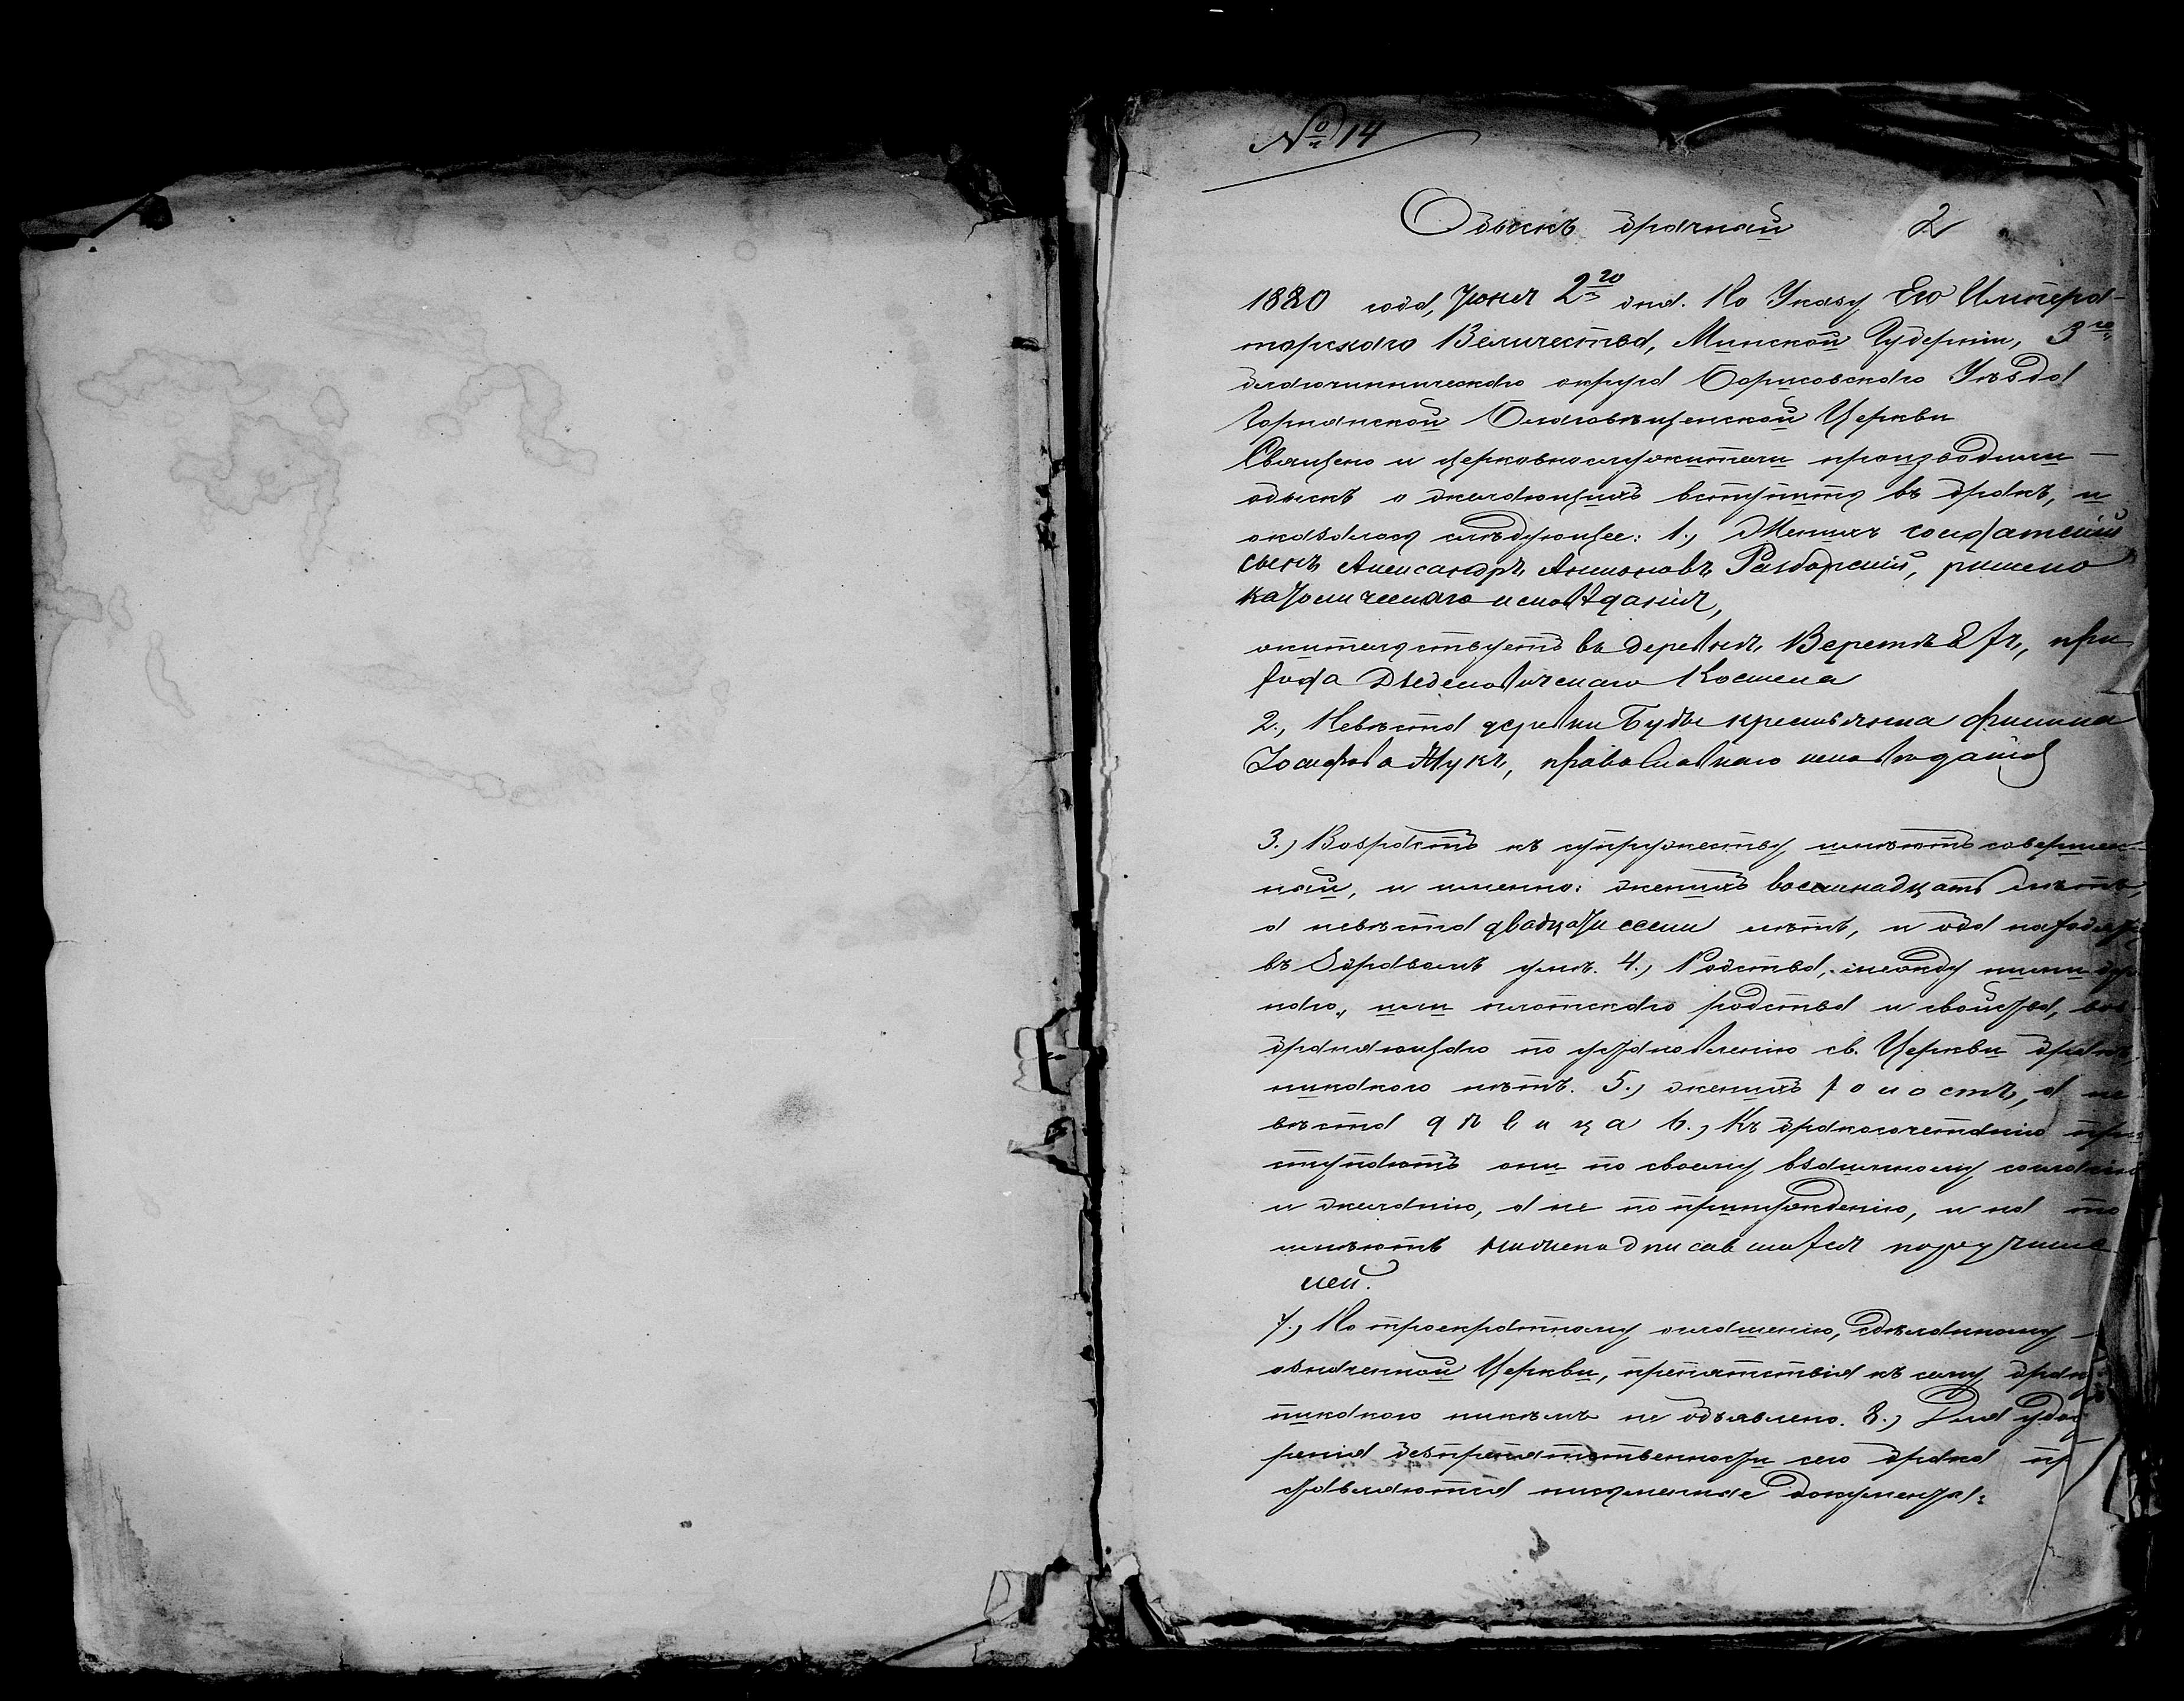 № 14
Обыскъ брачный 2
1880 года, Іюня 2го дня. По Указу Его Импера-
торскаго Величества, Минской Губерніи, 3го
благочинническаго округа Борисовскаго Уѣзда
Благовѣщенской Церкви
Священо и церковнослужители производили —
обыскъ о желающихъ вступить въ бракъ, и
оказалось слѣдующее: 1., Женихъ солдатскій
сынъ Александръ Антоновъ римско
католическаго исповѣданія,
жительствуетъ въ деревнѣ при
хода Костела
2., Невѣста деревни Буды крестьянка
Іосифова Жукъ, православнаго исповѣданія
3., Возрастъ къ супружеству имѣютъ совершен-
ный, и именно: женихъ восемнадцать лѣтъ,
а невѣста двадцати семи лѣтъ, и оба находятся
въ здравомъ умѣ. 4., Родства, между ними
наго, или плотскаго родства и свойства, вос-
браняющаго по установленію св. Церкви бракъ,
никакого нѣтъ. 5., женихъ холостъ, а не-
вѣста дѣвица 6., Къ бракосочетанію при-
ступаютъ они по своему взаимному согласію
и желанію, а не по принужденію, и на то
имѣютъ
лей.
7., По троекратному оглашенію, сдѣланному —
означенной Церкви, препятствія къ сему браку
никакого никѣмъ не объявлено. 8., Для удос
ренія безпрепятственности сего брака пр
ставляются письменные документы: